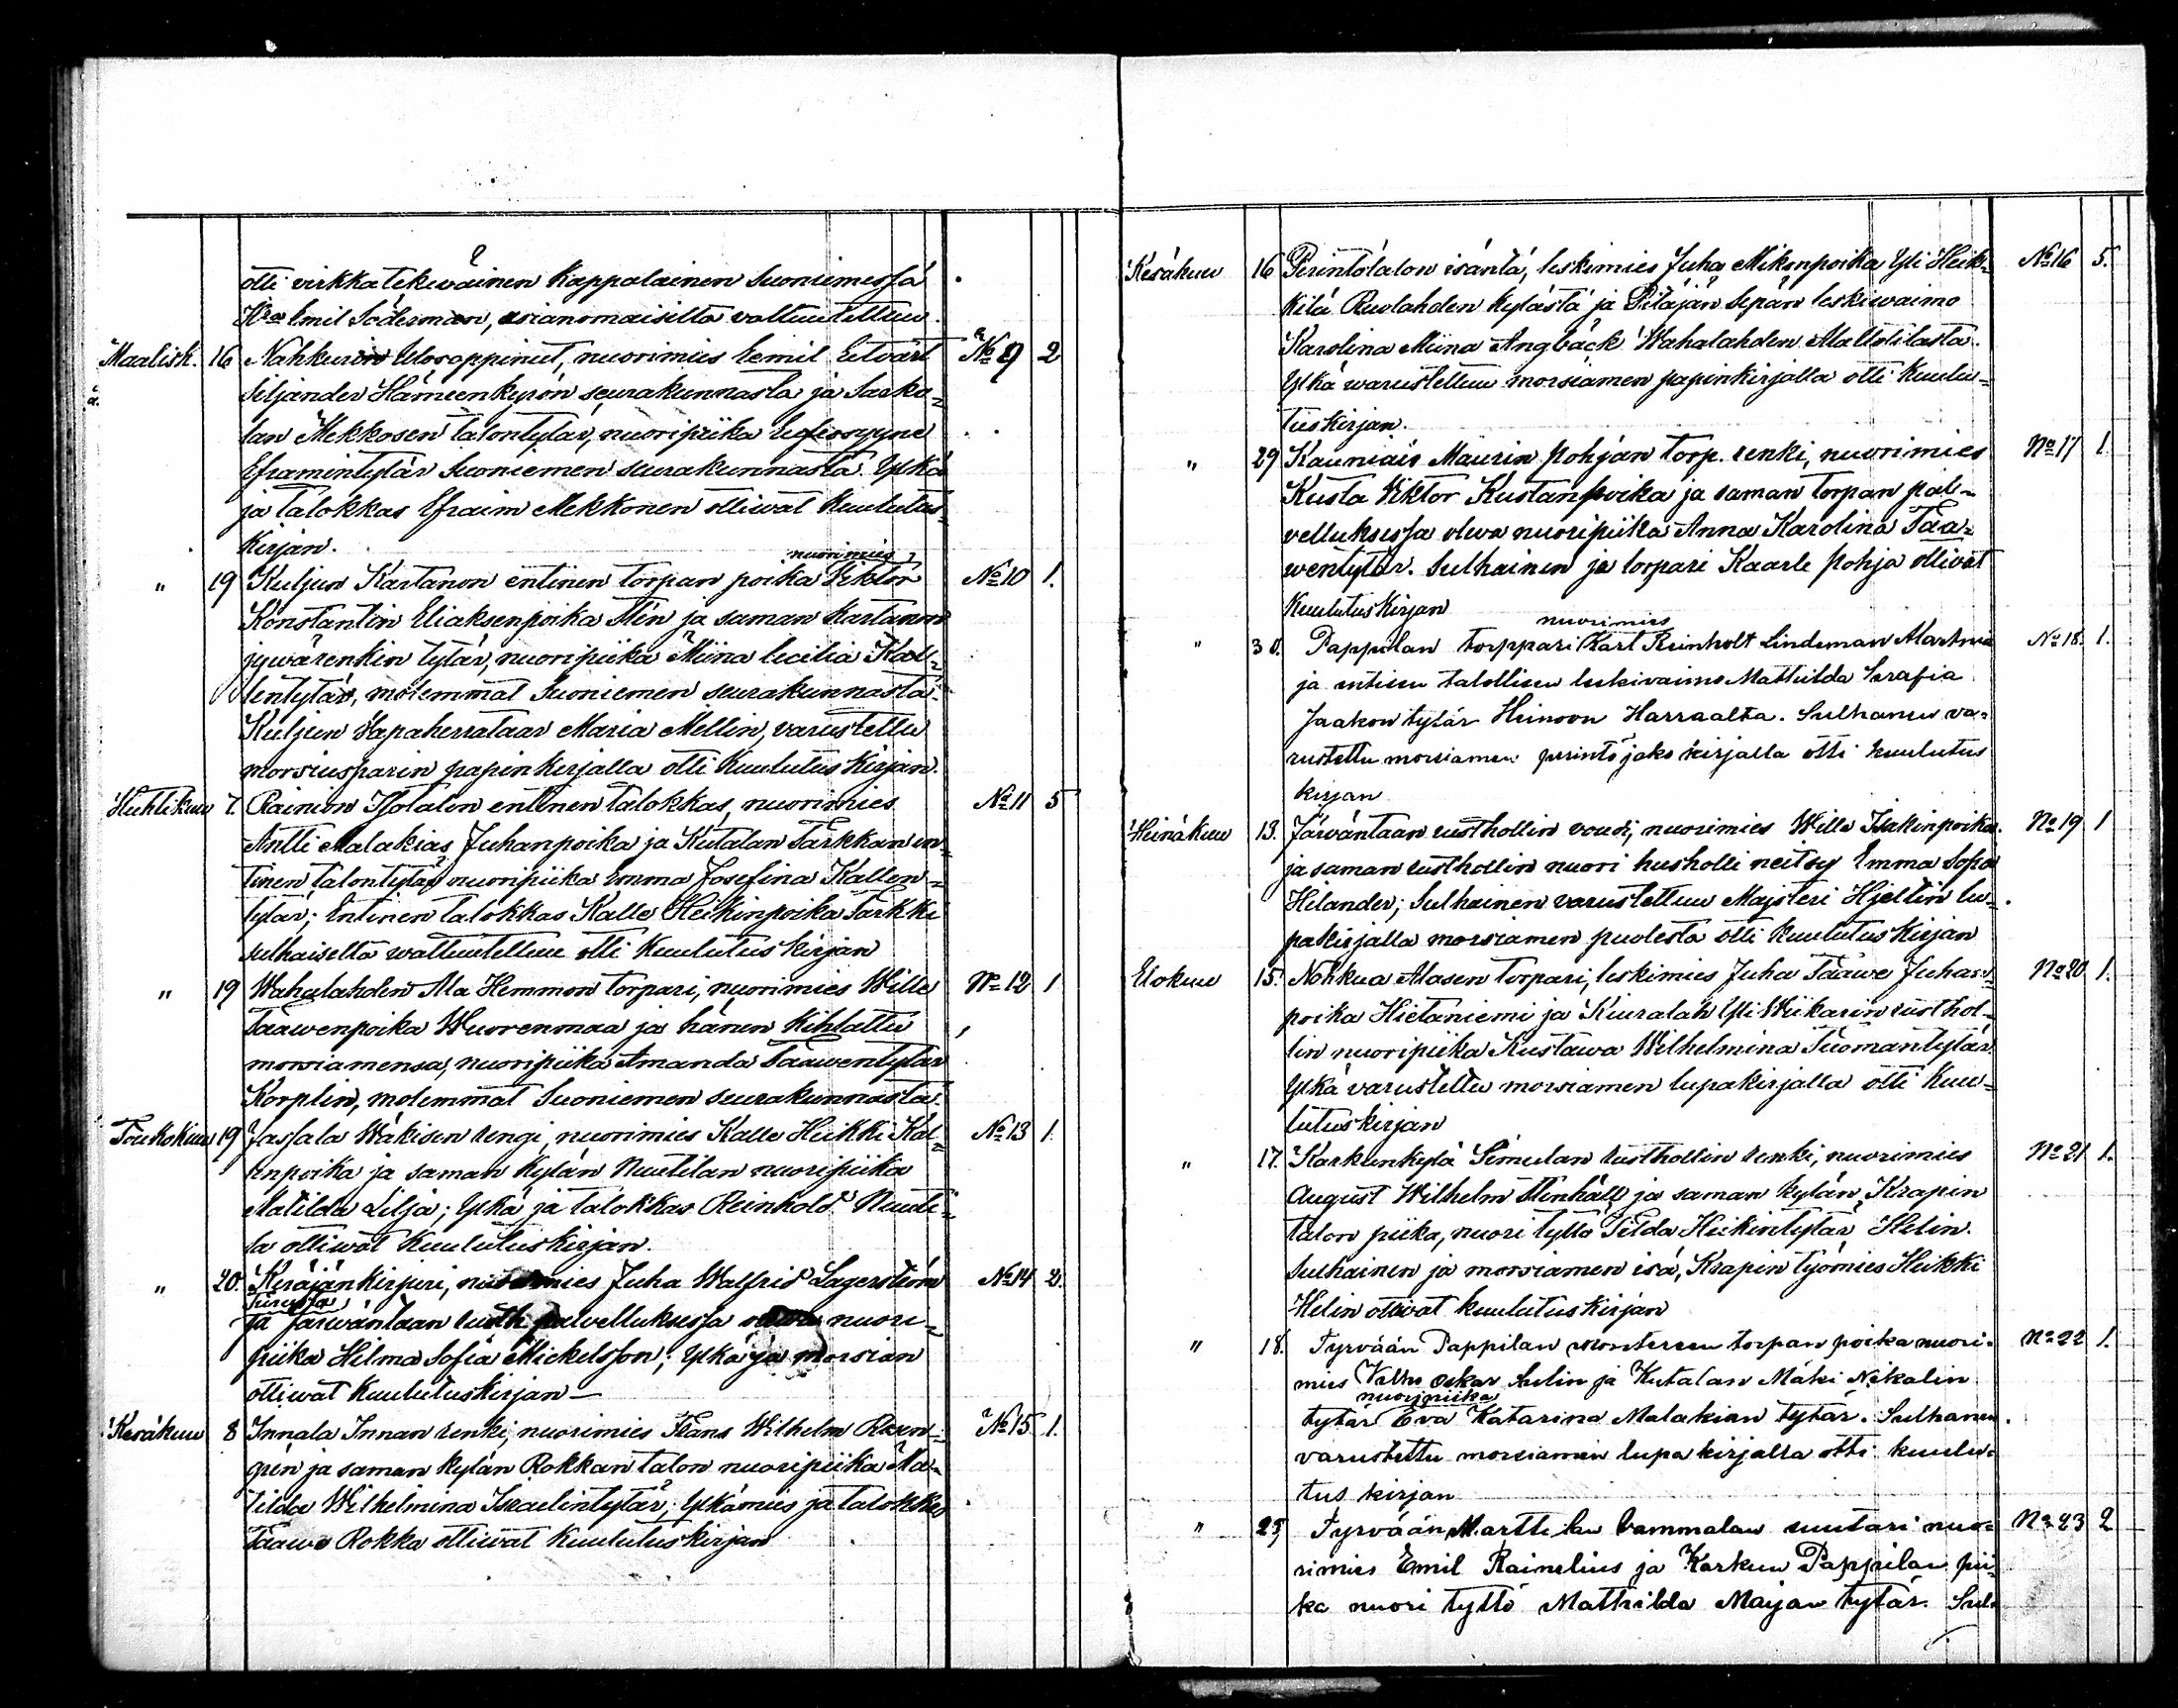 otti virkkatekeväinen Kappalainen Suoniemessä
Hra Emil Söderman, asianomaisilta valtuutettuu.
Maalisk. 16 Nahkurin Ulosoppinut, nuorimies Eemil Etvärt No 9 2
Siljander Hämeenkyrön seurakunnasta ja Sarko-
lan Mekkosen talontytär, nuoripiika Eufrosyyne
Eframintytär Suoniemen seurakunnasta. Ylkä
ja talokkas Efraim Mekkonen ottiwat Kuulutus
Kirjan.
nuorimies
" 19 Kuljun Kartanon entinen torpan poika Viktor No 10 1.
Konstantin Eliaksenpoika Stén ja saman Kartanon
jywärenkin tytär, nuoripiika Miina Cecilia Kal-
lentytär, molemmat Suoniemen seurakunnasta.
Kuljun Vapaherrataar Maria Mellin, varustettu
morsiusparin papinkirjalla otti Kuulutus Kirjan.
Huhtikuu 7. Rainion Isotalon entinen talokkas, nuorimies No 11 5
Antti Malakias Juhanpoika ja Kutalan Tarkkan en-
tinen talontytär nuoripiika Emma Josefina Kallen-
tytär; Entinen talokkas Kalle Heikinpoika Tarkki
sulhaiselta waltuutettuu otti Kuulutus Kirjan
" 19 Wahalahden Ala Hemmon torpari, nuorimies Wille No 12 1
Taawenpoika Wuorenmaa ja hänen Kihlattu
morsiamensa, nuoripiika Amanda Taawentytär
Korplin, molemmat Suoniemen seurakunnasta.
Toukokuu 19 Jassala Wäkisen rengi, nuorimies Kalle Heikki Kal- No 13 1.
lenpoika ja saman Kylän Nuutilan nuoripiika
Matilda Lilja; Ylkä ja talokkas Reinhold Nuuti-
la ottiwat Kuulutuskirjan.
" 20. Keräjänkirjuri, nuorimies Juha Walfrid Lagerström No 14 2.
ja Järwäntaan rusth. palvelluksessa olewa nuori-
piika Hilma Sofia Mickelsson; Ylkä ja morsian
ottiwat Kuulutuskirjan —
Kesäkuu 8 Innala Innan renki, nuorimies Frans Wilhelm Rosen- No 15 1.
grén ja saman Kylän Rokkan talon nuoripiika Ma-
tilda Wilhelmina Israelintytär; Ylkämies ja talokkas
Taawe Rokka ottiwat Kuulutuskirjan
Kesäkuu 16 Perintötalon isäntä, leskimies Juha Mikenpoika Yli Heik- No 16 5.
kilä Ruolahden Kylästä ja Pitäjän Sepän leskiwaimo
Karolina Miina Angbäck Wahalahden Maltotilasta.
Ylkä warustettuu morsiamen papinkirjalla otti Kuulu-
tuskirjan.
" 29 Kauniais Maurin Pohjan torp. renki, nuorimies No 17 1
Kusta Viktor Kustanpoika ja saman torpan pal-
velluksessa olewa nuoripiika Anna Karolina Taa-
wentytär. Sulhainen ja torpari Kaarle Pohja ottivat
Kuulutus Kirjan
nuorimies
" 30. Pappilan torppari Karl Reinholt Lindeman No 18. 1.
ja entisen talollisen leskivaimo Mathilda Serafia
Jaakon tytär Heinoon Harraalta. Sulhanen va-
rustettu morsiamen perintöjako kirjalla otti kuulutus
kirjan
Heinäkuu 13. Järväntaan rusthollin vouti, nuorimies Wille Isakinpoika No 19 1
ja saman rusthollin nuori husholli neitsy Emma Sofia
Helander; Sulhainen varustettuu Majsteri Hjeltin lu-
pakirjalla morsiamen puolesta otti Kuulutus Kirjan
Elokuu 15. Nohkua Alasen Torpari, leskimies Juha Taawe Juhan- No 20 1.
poika Hietaniemi ja Kiuralah Yli Wiikarin rusthol-
lin nuoripiika Kustawa Wilhelmina Tuomantytär.
Ylkä varustettu morsiamen lupakirjalla otti Kuu-
lutuskirjan
" 17. Karkunkylä Simulan rusthollin renki, nuorimies No 21 1.
August Wilhelm Stenhäll ja saman Kylän Krapin
talon piika, nuori tyttö Tilda Heikintytär Helin.
Sulhainen ja morsiamen isä, Krapin työmies Heikki
Helin ottivat kuulutus Kirjan
" 18. Tyrvään Pappilan torpan poika nuori- No 22 1.
mies Oskar Salin ja Kutalan Mäki
nuoripiika
tytär Eva Katarina Malakian tytär. Sulhanen
varustettu morsiamen lupakirjalla otti kuulu-
tus kirjan
" 25 Tyrvään Marttilan Vammalan suutari nuo- No 23 2
rimies Emil Rainelius ja Karkun Pappilan pii-
ka nuori tyttö Mathilda Maijan tytär. Sul-